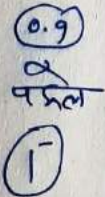 0.9
पहेल
1